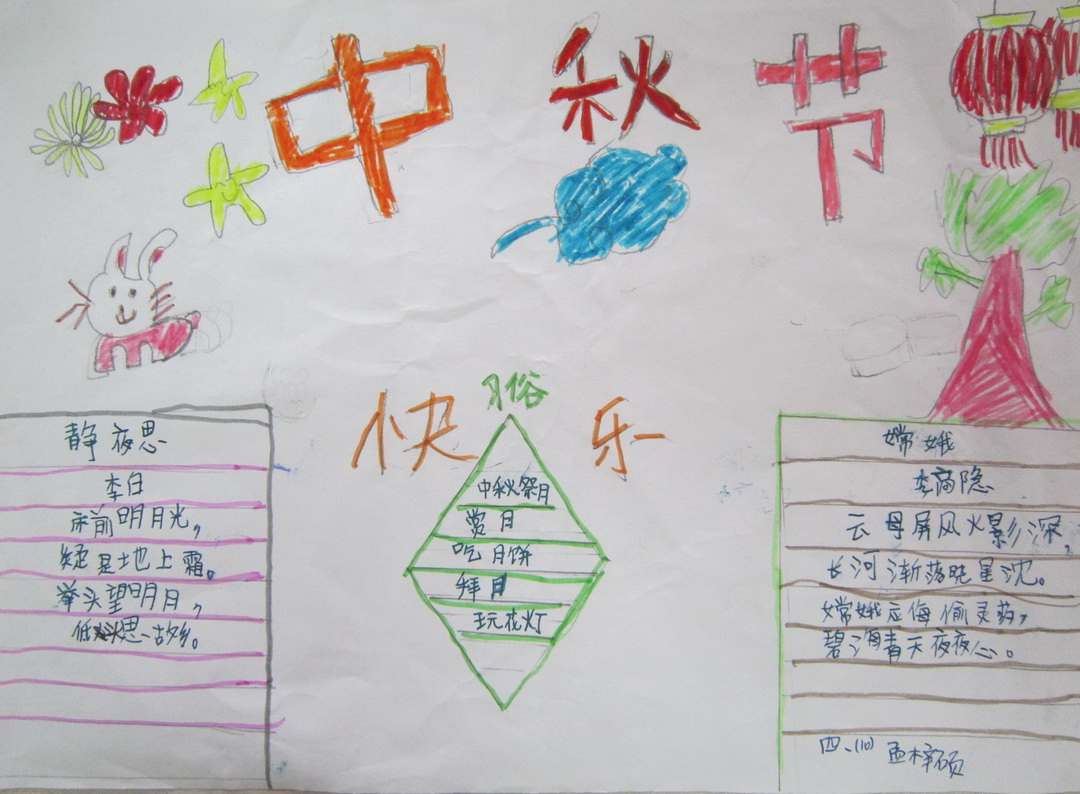 中秋节
快乐
习俗
静夜思
李白
床前明月光,
疑是地上霜。
举头望明月,
低思故乡。
中秋祭月
赏月
吃月饼
拜月
玩花灯
嫦娥
李商隐
云母屏风火影深,
长河渐落晓星沈。
嫦娥应悔偷灵药,
碧海青天夜夜心。
四、(10) 孟梓硕